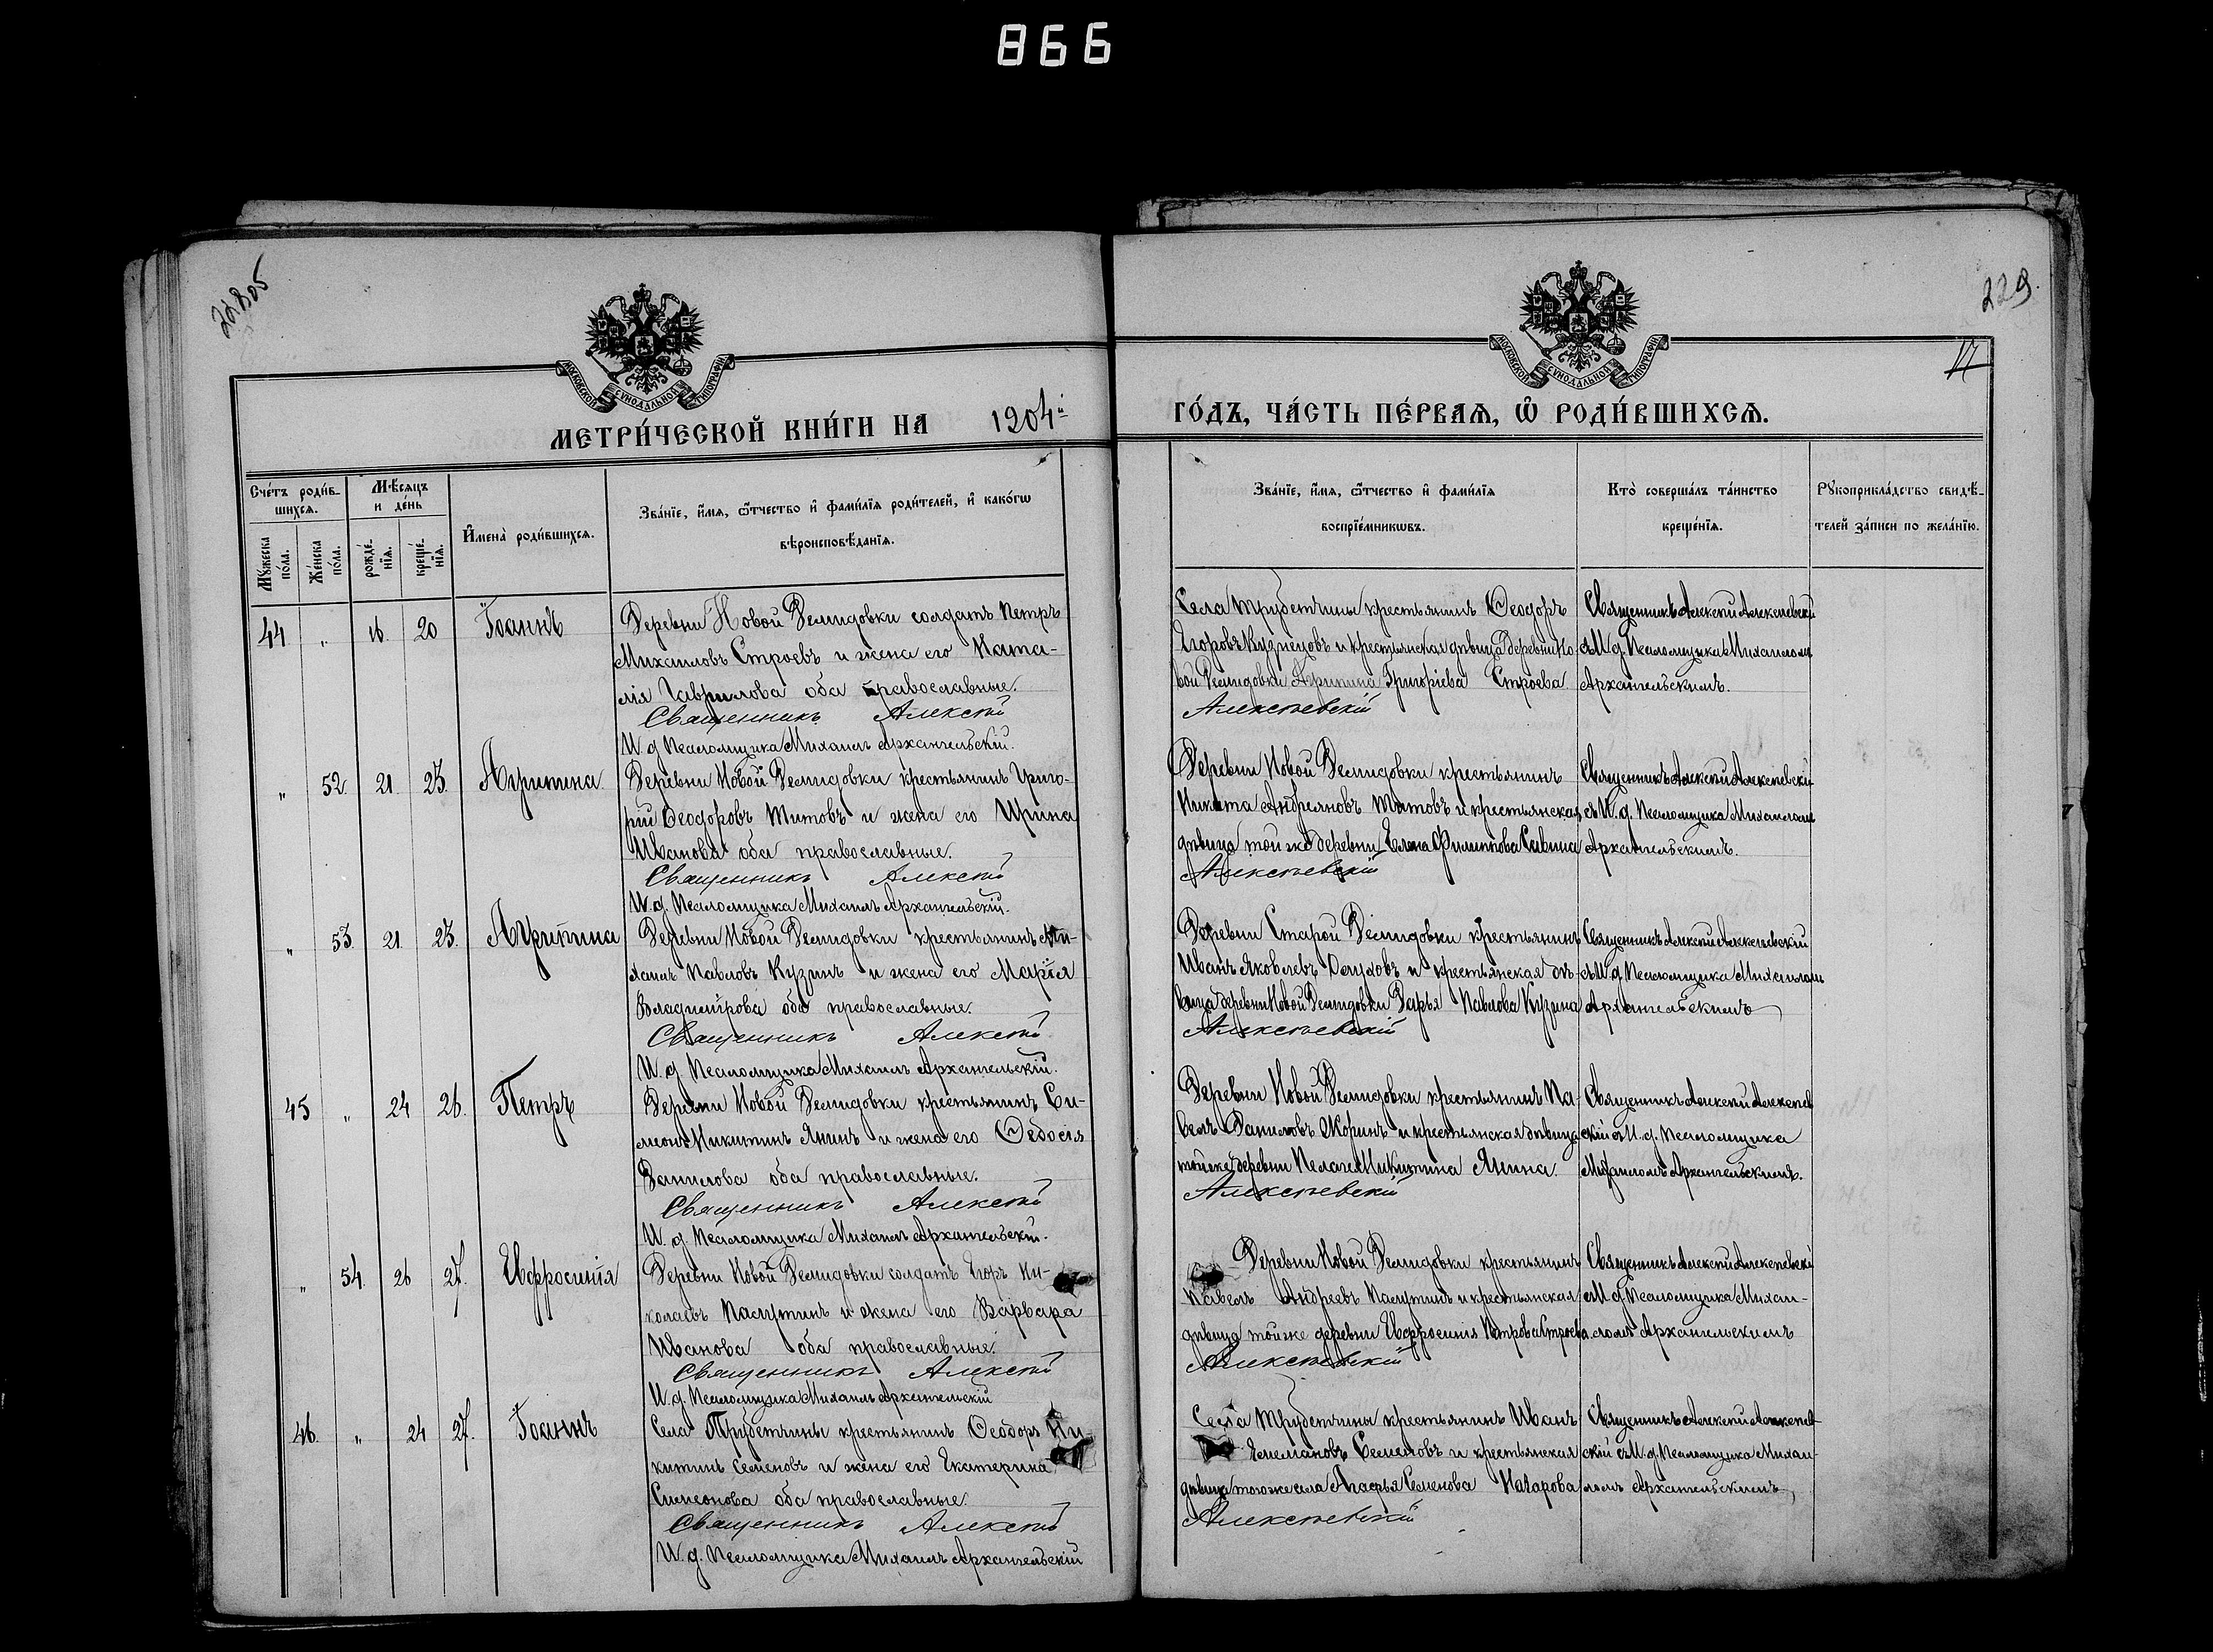 866
229
17
МОСКОВСКОЙ СѴНОДАЛЬНОЙ ТИПОГРАФІИ
МОСКОВСКОЙ СѴНОДАЛЬНОЙ ТИПОГРАФІИ
МЕТРИ́ЧЕСКОЙ КНИ́ГИ НА 1904й ГО́ДЪ, ЧА́СТЬ ПЕ́РВАѦ, Ѡ҆ РОДИ́ВШИХСѦ.
Сче́тъ роди́в-
шихсѧ.
Мꙋжеска по́ла.
Же́нска по́ла.
Мѣ́сѧцъ и де́нь
рожде́-нїѧ.
креще́-нїѧ.
И҆мена̀ роди́вшихсѧ.
Зва́нїе, и҆́мѧ, ѻ҆́тчество и҆ фами́лїѧ роди́телей, и҆ како́гѡ
вѣроисповѣ́данїѧ.
Зва́нїе, и҆́мѧ, ѻ҆́тчество и҆ фами́лїѧ
воспрїе́мникѡвъ.
Кто̀ соверша́лъ та́инство
креще́нїѧ.
Рꙋкоприкла́дство свидѣ́-
телей за́писи по жела́нїю.
44 " 16 20 Іоаннъ
Деревни Новой Демидовки солдатъ Петръ
Михаиловъ Строевъ и жена его Ната-
лія Гаврилова оба православные.
Священникъ Алексѣй
И. д. Псаломщика Михаилъ Архангельскій.
Села Трубетчины крестьянинъ Ѳеодоръ
Егоровъ Кузнецовъ и крестьянская дѣвица деревни Но-
вой Демидовки Агрипина Григоріева Строева
Алексѣевскій
Священникъ Алексѣй Алексѣевскій
съ И. д. Псаломщика Михаиломъ
Архангельскимъ.
" 52. 21. 23. Агрипина
Деревни Новой Демидовки крестьянинъ Григо-
рій Ѳеодоровъ Титовъ и жена его Ирина
Иванова оба православные.
Священникъ Алексѣй
И. д. Псаломщика Михаилъ Архангельскій.
Деревни Новой Демидовки крестьянинъ
Никита Андреяновъ Титовъ и крестьянская
дѣвица той же деревни Елена Филиппова Савина
Алексѣевскій
Священникъ Алексѣй Алексѣевскій
съ И. д. Псаломщика Михаиломъ
Архангельскимъ.
" 53. 21. 23. Агрипина
Деревни Новой Демидовки крестьянинъ Ми-
хаилъ Павловъ Кузинъ и жена его Марія
Владимірова оба православные.
Священникъ Алексѣй
И. д. Псаломщика Михаилъ Архангельскій.
Деревни Старой Демидовки крестьянинъ
Иванъ Яковлевъ и крестьянская дѣ-
вица деревни Новой Демидовки Дарья Павлова Кузина
Алексѣевскій
Священникъ Алексѣй Алексѣевскій
съ И. д. Псаломщика Михаиломъ
Архангельскимъ
45 " 24 26. Петръ
Деревни Новой Демидовки крестьянинъ Си-
меонъ Никитинъ Янинъ и жена его Ѳедосія
Данилова оба православные.
Священникъ Алексѣй
И. д. Псаломщика Михаилъ Архангельскій.
Деревни Новой Демидовки крестьянинъ Па-
велъ Даниловъ Жоринъ и крестьянская дѣвица
той же деревни Пелагея Никитина Янина.
Алексѣевскій
Священникъ Алексѣй Алексѣев
скій съ И. д. Псаломщика
Михаиломъ Архангельскимъ.
" 54. 26 27. Евфросинія
Деревни Новой Демидовки солдатъ Егоръ Ни-
колаевъ Палутинъ и жена его Варвара
Иванова оба православные.
Священникъ Алексѣй
И. д. Псаломщика Михаилъ Архангельскій
Деревни Новой Демидовки крестьянинъ
Павелъ Андреевъ Палутинъ и крестьянская
дѣвица той же деревни Евфросинія Петрова Строева
Алексѣевскій
Священникъ Алексѣй Алексѣевскій
съ И. д. Псаломщика Михаи-
ломъ Архангельскимъ
46. " 24 27. Іоаннъ
Села Трубетчины крестьянинъ Ѳеодоръ Ни-
китинъ Семеновъ и жена его Екатерина
Симеонова оба православные.
Священникъ Алексѣй
И. д. Псаломщика Михаилъ Архангельскій
Села Трубетчины крестьянинъ Иванъ
Емелиановъ Семеновъ и крестьянская
дѣвица того же села Агафья Семенова Назарова
Алексѣевскій
Священникъ Алексѣй Алексѣев-
скій съ И. д. Псаломщика Михаи-
ломъ Архангельскимъ